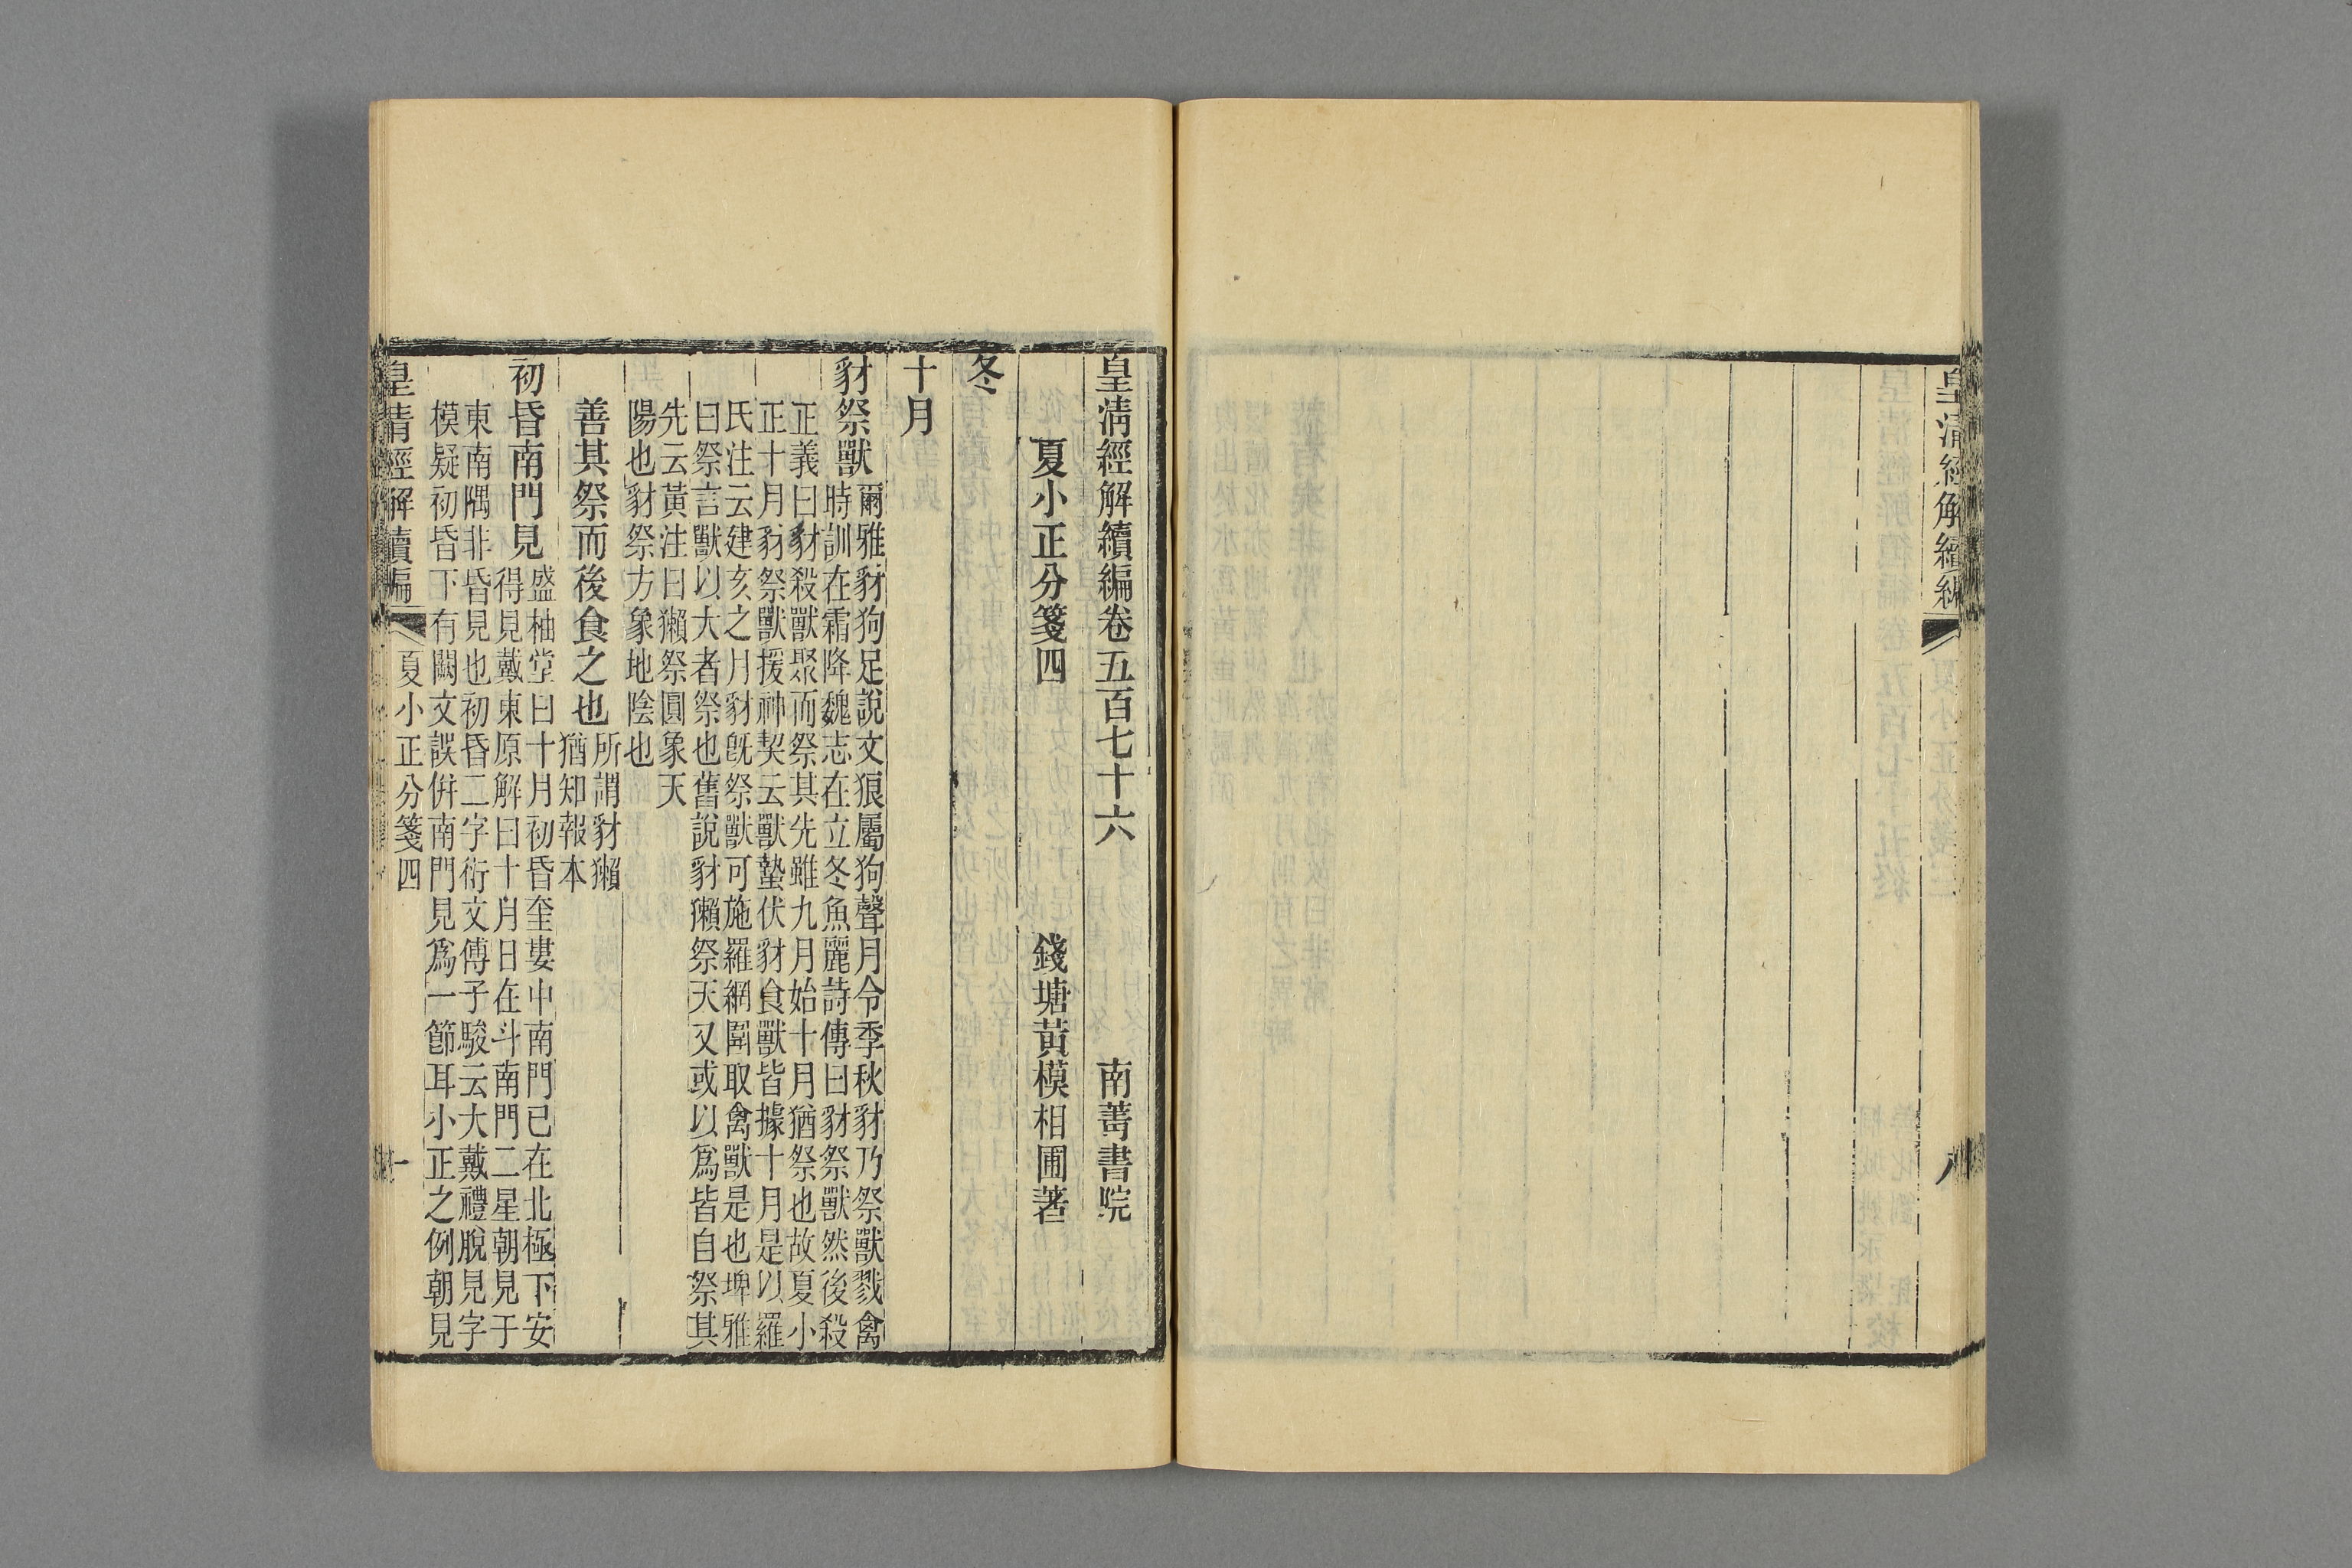 皇清經解續編
八
皇清經解續編卷五百七十六　南菁書院
夏小正分箋四　錢塘黃模相圃著
冬
十月
豺祭獸
爾雅豺狗足說文狼屬狗聲月令季秋豺乃祭獸戮禽
時訓在霜降魏志在立冬魚麗詩傳曰豺祭獸然後殺
正義曰豺殺獸聚而祭其先雖九月始十月猶祭也故夏小
正十月豺祭獸援神契云獸蟄伏豺食獸皆據十月是以羅
氏注云建亥之月豺旣祭獸可施羅網圍取禽獸是也埤雅
曰祭言獸以大者祭也舊說豺獺祭天又或以爲皆自祭其
先云黃注曰獺祭圓象天
陽也豺祭方象地陰也
善其祭而後食之也
所謂豺獺
猶知報本
初昏南門見
盛柚堂曰十月初昏奎婁中南門已在北極下安
得見戴東原解曰十月日在斗南門二星朝見于
東南隅非昏見也初昏二字衍文傅子駿云大戴禮脫見字
模疑初昏下有闕文誤倂南門見爲一節耳小正之例朝見
皇清經解續編
夏小正分箋四
一